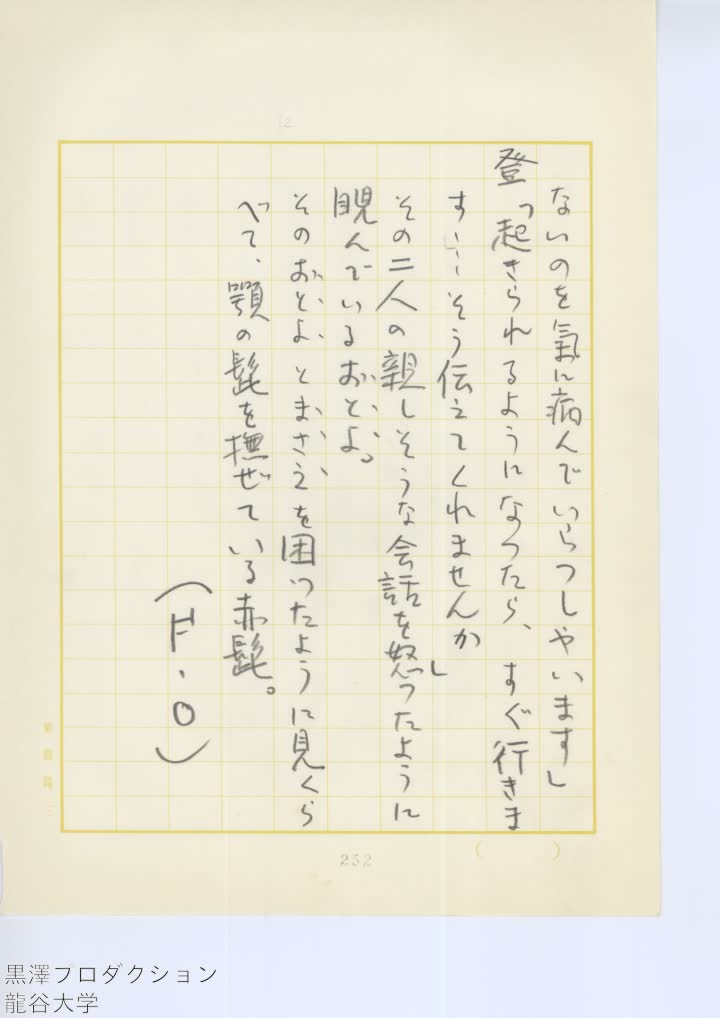 ないのを氣に病んでいらつしやいます」
登「起きられるようになつたら、すぐ行きま
す……そう伝えてくれませんか」
その二人の親しそうな会話を怒つたように
睨んでいるおとよ。
そのおとよとまさえを困つたように見くら
べて、顎の髭を撫ぜている赤髭。
(F・O)
252
( )
黒澤プロダクション
龍谷大学